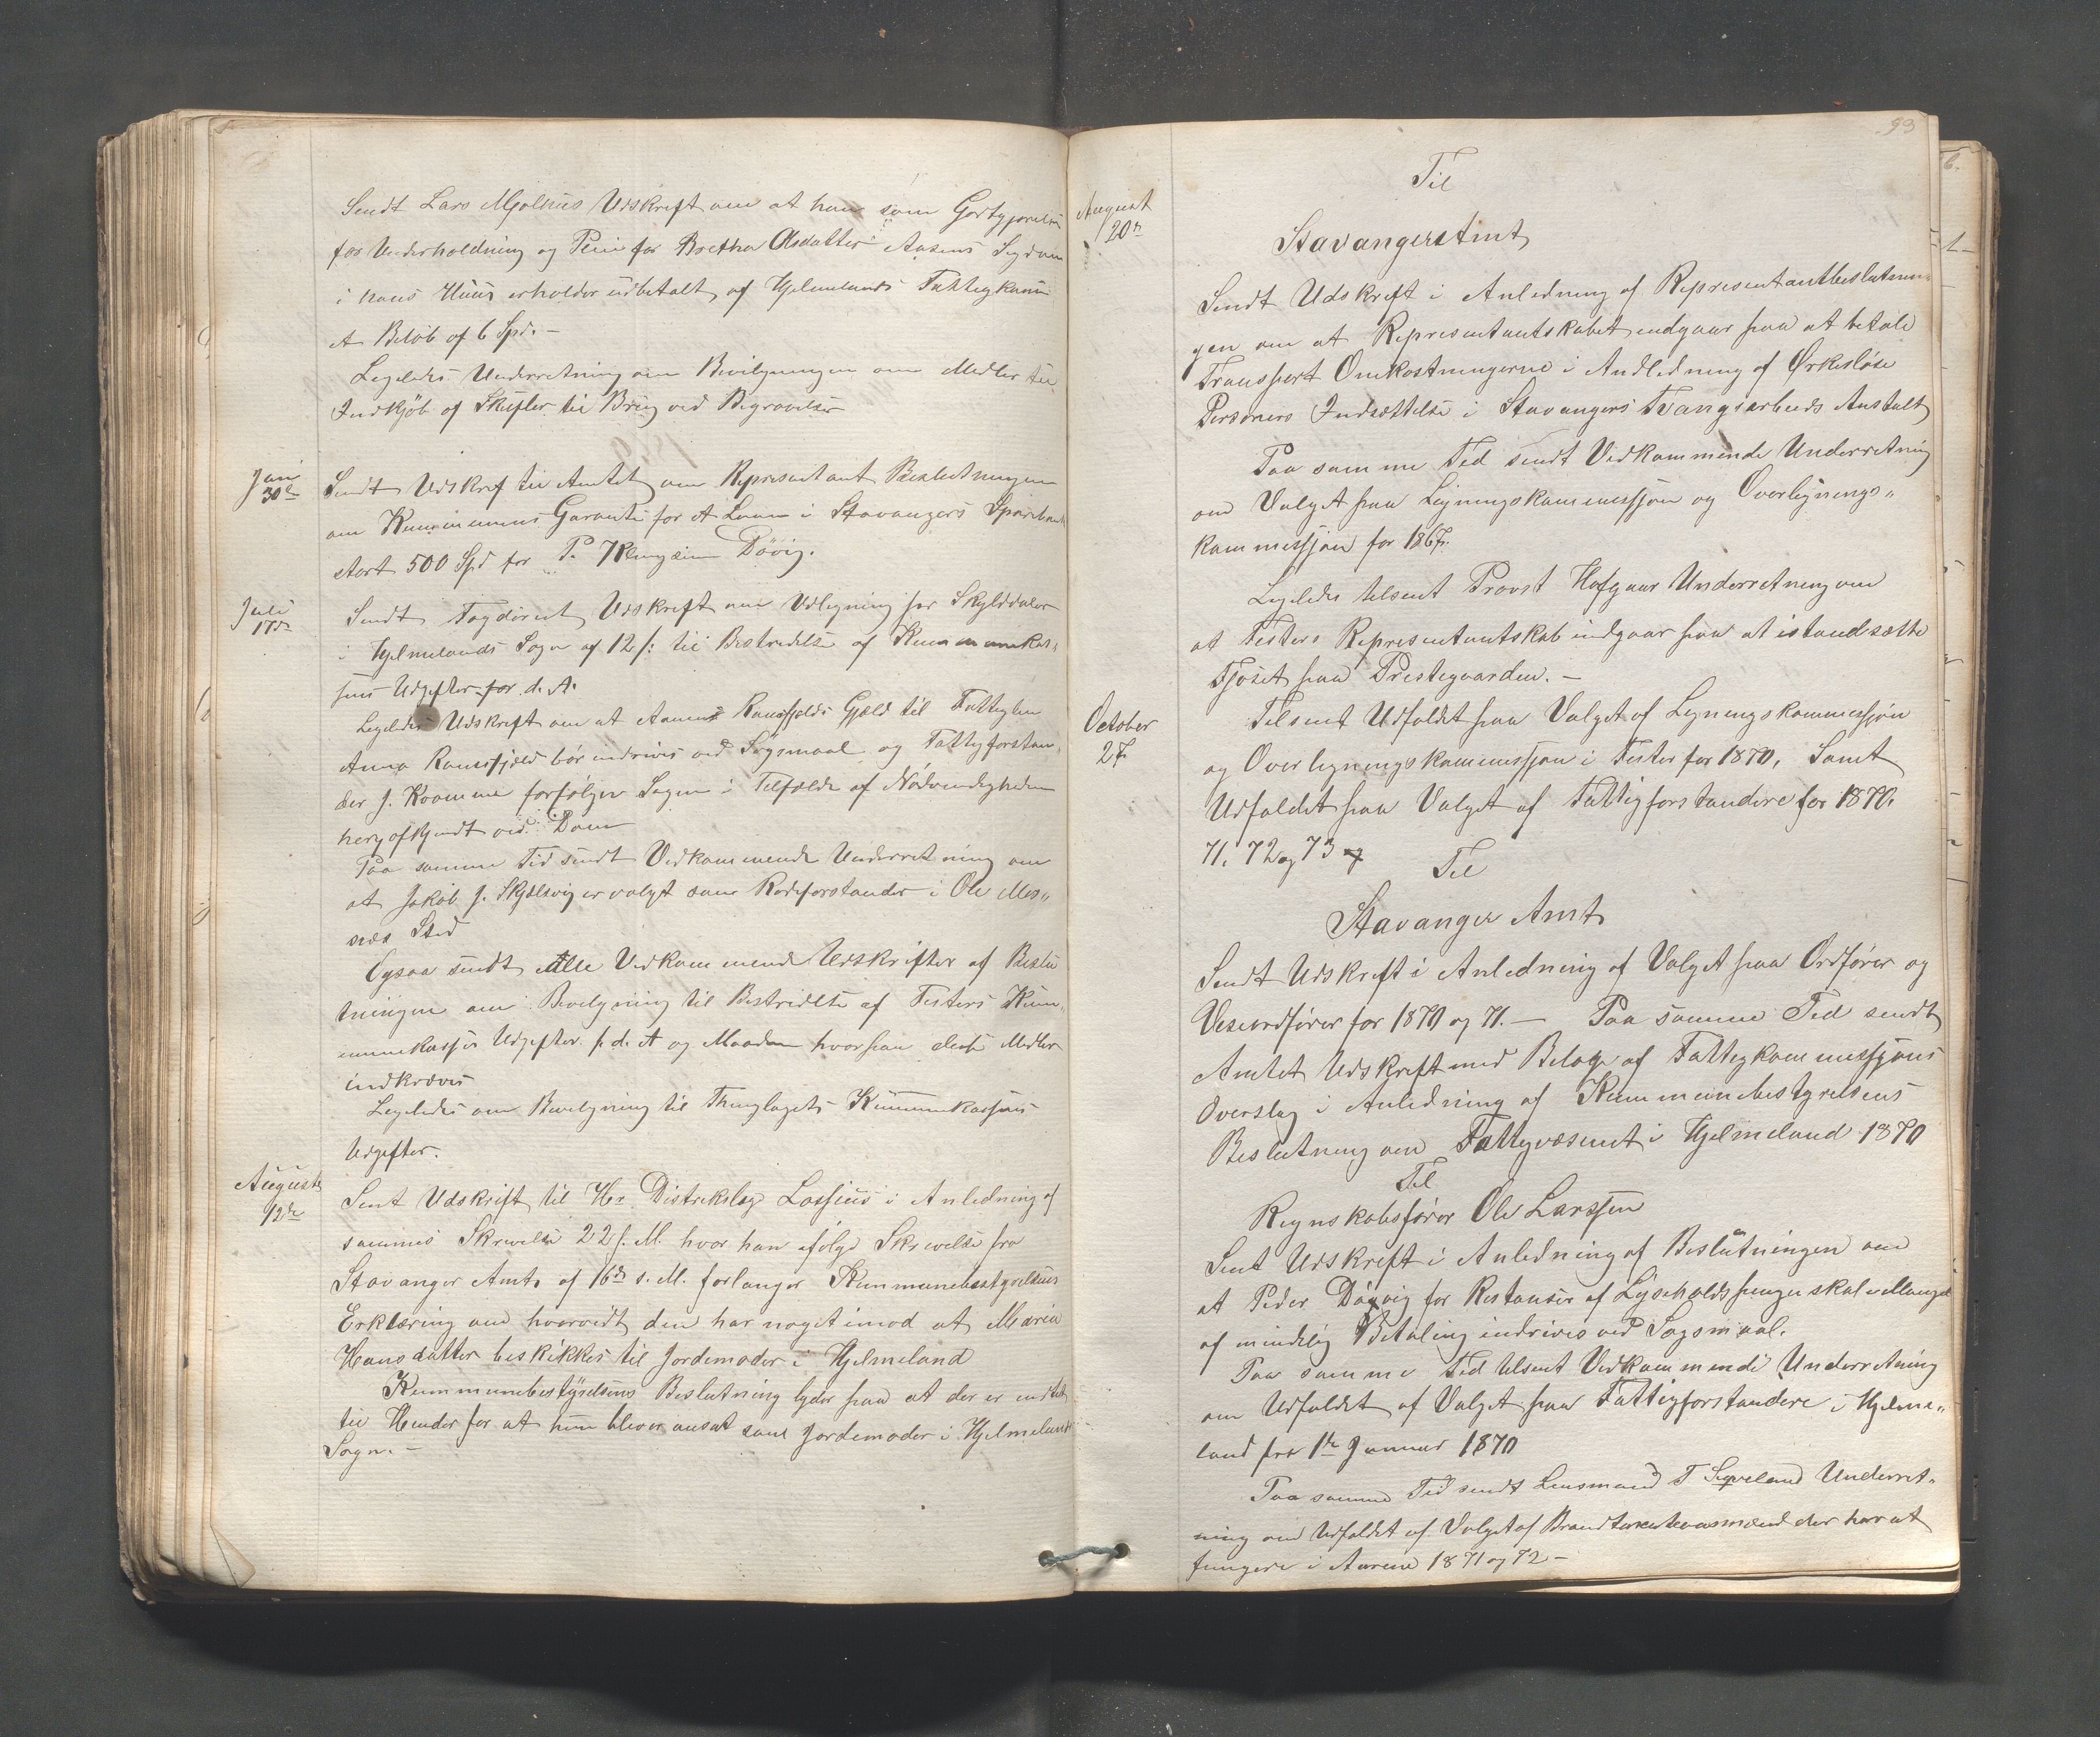 Sendt Lars Mjølhus Udskrift om at han som Godtgjørelse
for Underholdning og Pleie for Bretha Olsdatter Aasens Sygdom
i hans Huus erholder udbetalt af Hjelmelands Fattigkasse
et Beløb af 6 Spd. –
Ligeledes Underretning om Bevilgningen om Midler til
Indkjøb af Skufler til Brug ved Begravelser
Juni
30te
Sendt Udskrift til Amtet om Representant Beslutningen
om Kummunens Garanti for et Laan i Stavangers Sparebank
stort 500 Spd for P. Døvig.
Juli
17de
Sendt Fogderiet Udskrift om Udligning per Skylddaler
i Hjelmelands Sogn af 12 s: til Bestridelse af Kummunekas-
sens Udgifter for d. A.
Ligeledes Udskrift om at Aamund Ramsfjelds Gjæld til Fattiglem
Anna Ramsfjeld bør inddrives ved Søgsmaal og Fattigforstan-
der J. Kvamme forfølger Sagen i Tilfælde af Nødvendigheden
ved Dom
Paa samme Tid sendt Vedkommende Underretning om
at Jakob J. Skjelsvig er valgt som Rodeforstander i Ole Mes„
næs Sted
Ogsaa sendt Alle Vedkommende Udskrifter af Beslu
tningen om Bevilgning til Bestridelse af Fisters Kum„
munekasses Udgifter f. d. A og Maaden hvorpaa disse Midler
indkræves
Ligeledes om Bevilgning til Thinglagets Kummunekasses
Udgifter.
August
12de
Sent Udskrift til Hr Distriktslæg Lossius i Anledning af
sammes Skrivelse 22 f. M. hvor han ifølge Skrivelse fra
Stavanger Amt af 16de s. M. forlanger Kummunebestyrelsens
Erklæring om hvorvidt den har noget imod at Maria
Hansdatter beskikkes til Jordemoder i Hjelmeland
Kummunebestyrelsens Beslutning lyder paa at der er intet
til Hinder for at hun bliver ansat som Jordemoder i Hjelmelands
Sogn. –
93
August
20de
Til
Stavangers Amt
Sendt Udskrift i Anledning af Representantbeslutnin-
gen om at Representantskabet indgaar paa at betale
Transport Omkostningerne i Andledning af Ørkesløse
Personers Indsættelse i Stavangers Tvangsarbeids Anstalt
Paa samme Tid sendt Vedkommende Underretning
om Valget paa Ligningskommissjon og Overlignings„
kommissjon for 1867.
Ligeledes tilsent Provst Hofgaar Underretning om
at Fisters Representantskab indgaar paa at istandsætte
Fjøset paa Prestegaarden. –
October
27.
Tilsent Udfaldet paa Valget af Ligningskommissjon
og Overligningskommissjon i Fister for 1870, Samt
Udfaldet paa Valget af Fattigforstandere for 1870.
71. 72 og 73
Til
Stavanger Amt
Sendt Udskrift i Anledning af Valget paa Ordfører og
Viseordfører for 1870 og 71. – Paa samme Tid sendt
Amtet Udskrift med Bilage af Fattigkommissjons
Overslag i Anledning af Kummunebestyrelsens
Beslutning om Fattigvæsenet i Hjelmeland 1870
Til
Regnskabsfører Ole Larssen
Sent Udskrift i Anledning af Beslutningen om
at Peder Døvig for Restanser af Lyseholdspenger skal i Mangel
af mindelig Betaling inddrives ved Søgsmaal.
Paa samme Tid tilsent Vedkommende Underretning
om Udfaldet af Valget paa Fattigforstandere i Hjelme„
land fra 1te Januar 1870
Paa samme Tid sendt Lensmand T Underret„
ning om Udfaldet af Valget af Brandtakstmænd der har at
fungere i Aarene 1871 og 72 –